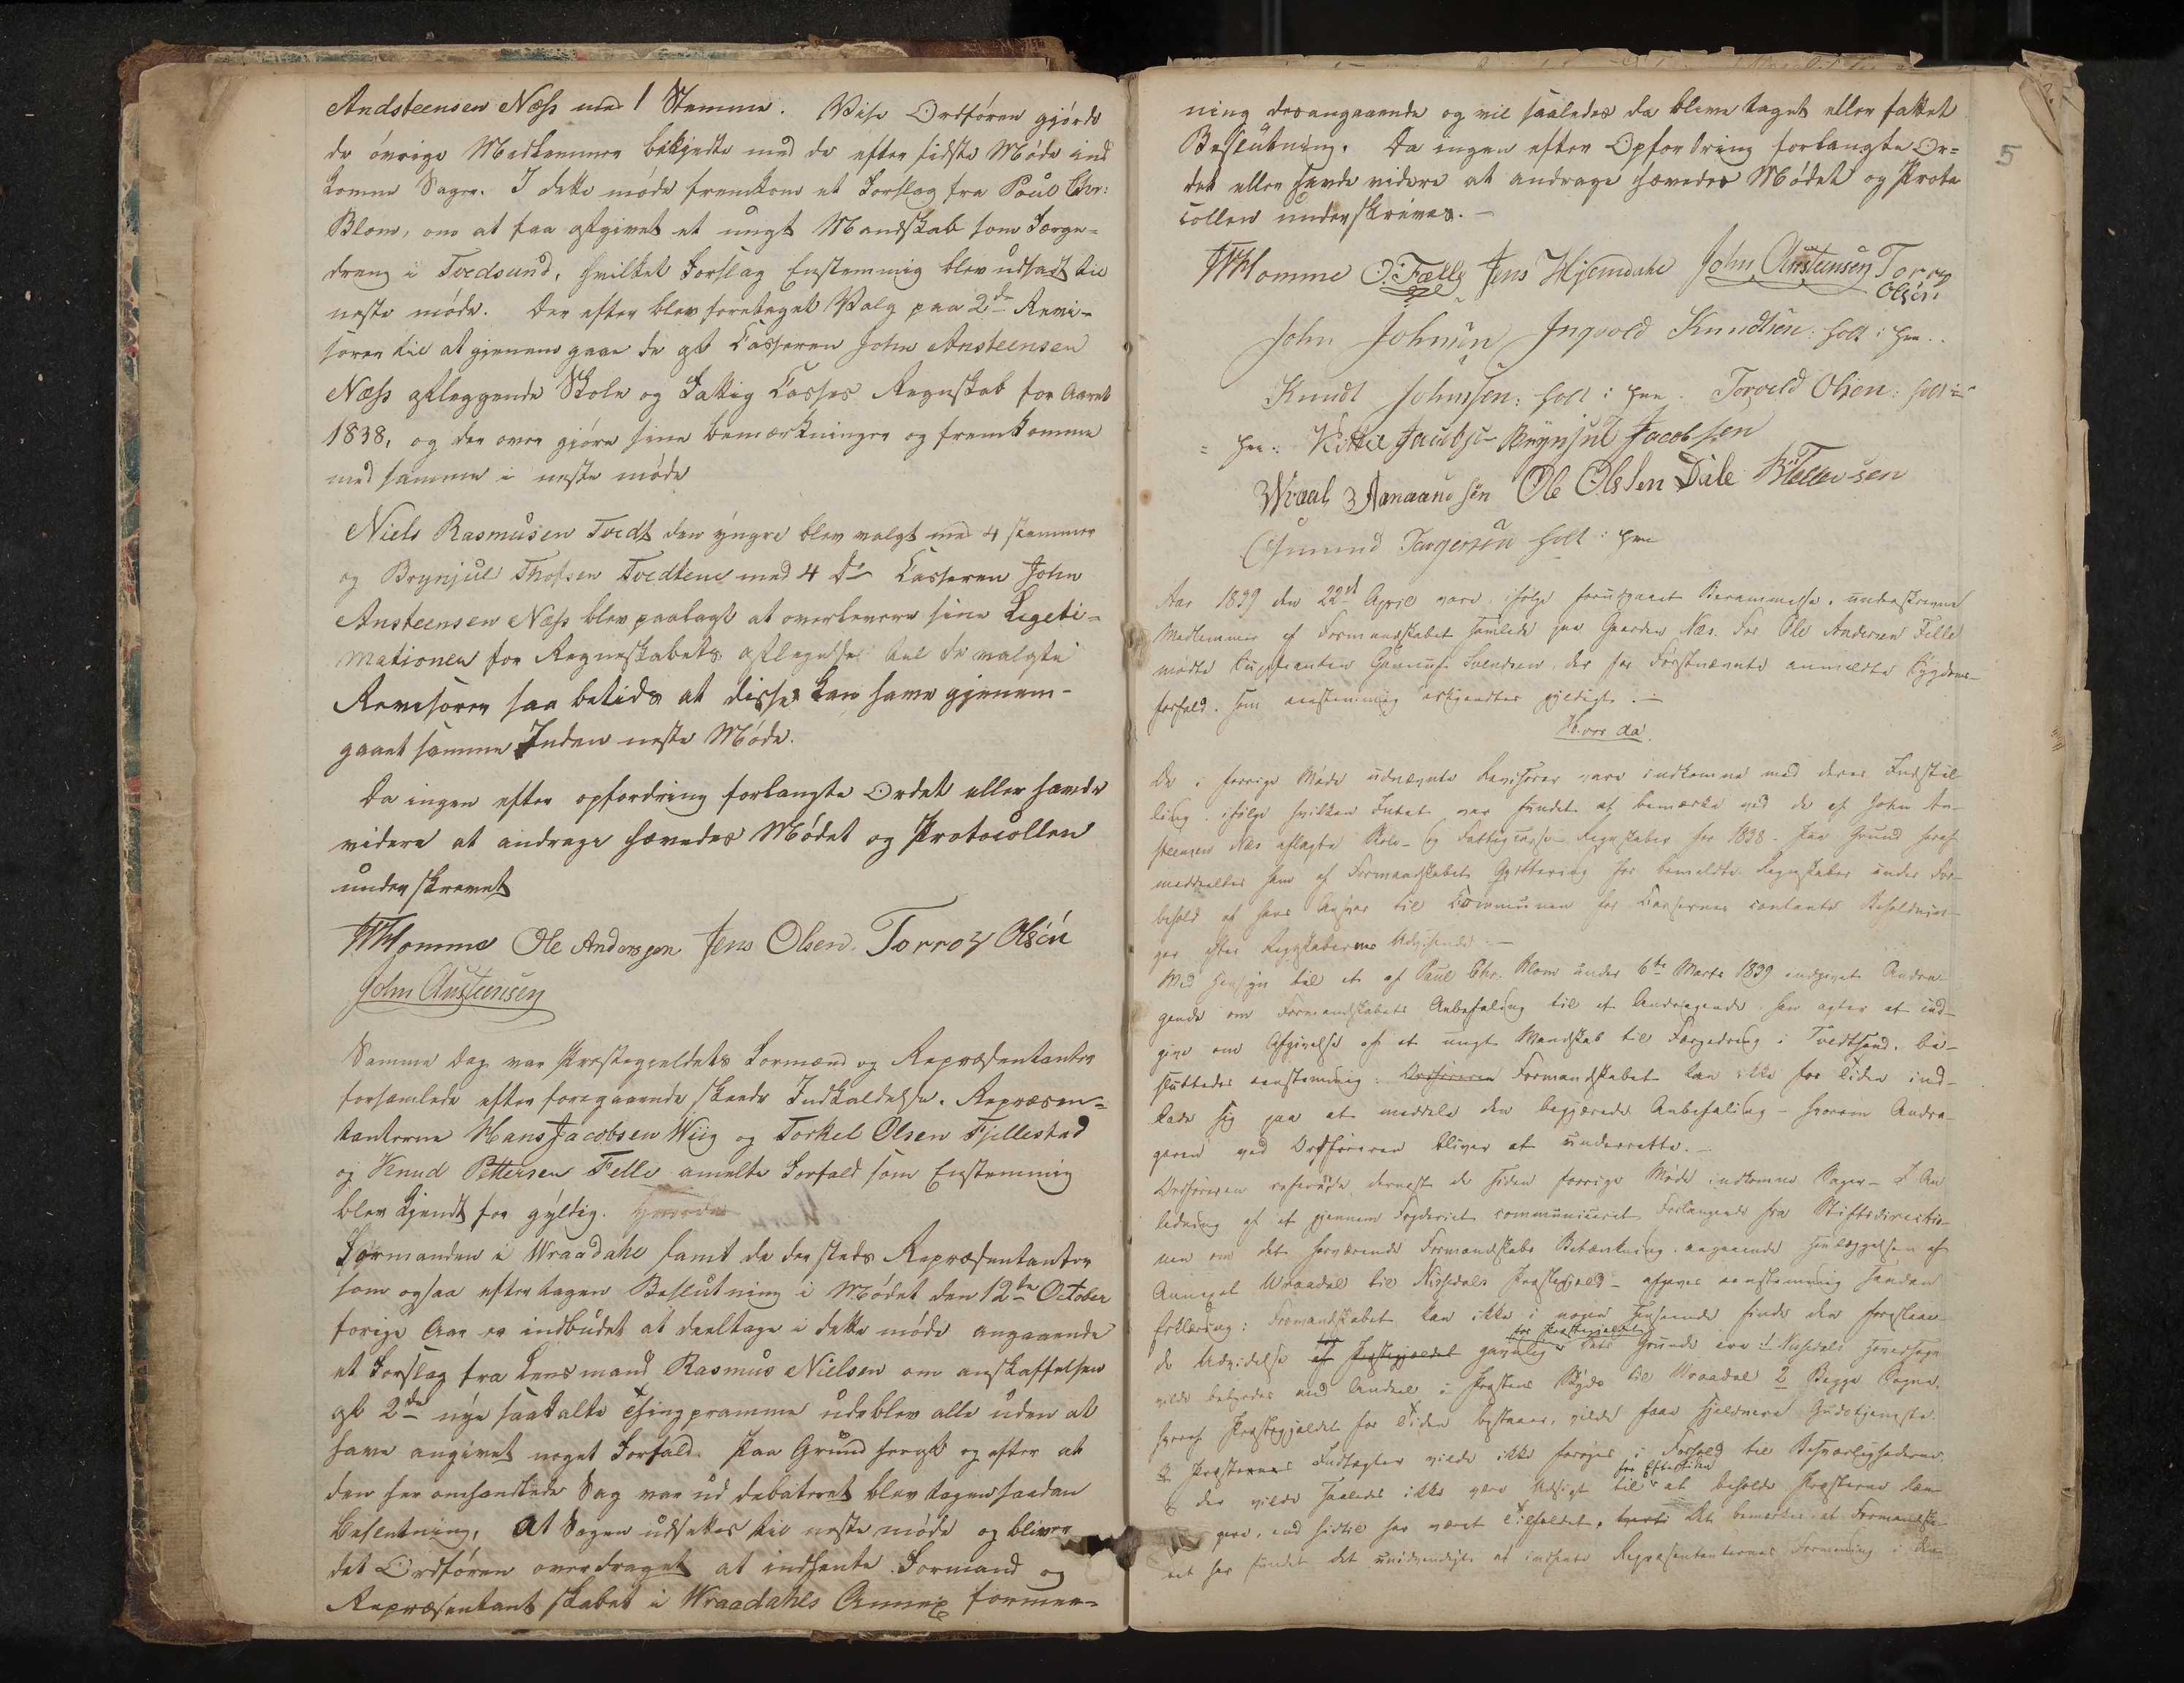 Andsteensen Næss med 1 Stemme. Vise Ordføren gjorde
de øvrige Medlemmer bekjendte med de efter sidste Møde ind
komne Sager. I dette møde fremkom et Forslag fra Poul Chr:
Blom, om at faa afgivet et ungt Mandskab som Færge-
dreng i Tvedsund, hvilket Forslag Enstemmig blev udsadt til
neste møde. Der efter blev foretaget Valg paa 2de Revi-
sorer til at gjennemgaae de af Casseren John Ansteensen
Næss aflæggende Skole og Fattig Casses Regnskab for Aaret
1838, og der over gjøre sine bemærkninger og fremkomme
med samme i neste møde
Niels Rasmusen Tvedt den yngre blev valgt med 4 stemmer
og Brynjul Thofsen Tvedtene med 4 do Casseren John
Ansteensen Næss blev paalagt at overlevere sine Legeti-
mationer for Regneskabets aflegelse til de valgte
Revisorer saa betids at disse kan have gjenem-
gaaet samme Inden neste Møde.
Da ingen efter opfordring forlangte Ordet eller havde
videre at andrage hævedes Mødet og Protocollen
underskrevet
Homme Ole Andersen Jens Olsen. Torro Olsen
John Austensen
Samme Dag var Præstegjeldets Formænd og Repræsentanter
forsamlede efter foregaaende skeede Indkaldelse. Repræsen-
tanterne Hans Jacobsen Wiig og Torkel Olsen Fjellestad
og Knud Pettersen Felle amelte Forfald som Enstemmig
blev kjendt for gyldig.
Formanden i Wraadahl samt de dersteds Repræsentanter
som ogsaa efter tagen Beslutning i Mødet den 12te October
forige Aar er indbudet at deeltage i dette møde angaaende
et Forslag fra Lensmand Rasmus Nielsen om anskaffelsen
af 2de nye saakalte Thingpramme udeblev alle uden at
have angivet noget Forfald. Paa Grund heraf og efter at
den her omhandlede Sag var ud debateret blev tagen saadan
Beslutning, at Sagen udsettes til neste møde og bliver
det Ordføren overdraget at indhente Formand og
Repræsentant skabet i Wraadahls Annex formee-
5
ning desangaaende og vil saaledes da blive taget eller fattet
Beslutning. Da ingen efter Opfordring forlangte Or-
det eller havde videre at andrage hævedes Mødet og Proto
collen underskrives. -
Homme O. Fælle Jens Hjemdahl John Austensen Torro
Olsen
John Johnsen Ingvold Knudsen: holt i Pen.
Knudt Johnsen: holt i Pen. Torveld Olsen: holt i
Pen. Kittil Jacobse Brynjul Jacobsen
Wraal Aanaand sen Ole Olssen Dale Tellevsen
Gunund Targersen holt i Pen
Aar 1839 den 22de April vare ifølge forudgaaet Berammelse, underskrevne
Medlemmer af Formandskabet samlede paa Gaarden Næs. For Ole Andersen Felle
mødte Suppleanten Svendsen, der for Førstnævnte anmældte Sygdoms-
forfald, som eenstemmig erkjendtes gyldigt. -
Hvor da
De i forrige Møde udnævnte Revisorer vare indkomne med deres Indstil-
ling, ifølge hvilken Intet var fundet at bemærke ved de af John An-
steensen Næs aflagte Skole- og Fattigcasse-Regnskaber for 1838. Paa Grund heraf
meddeeltes ham af Formandskabet Qvittering for bemeldte Regnskaber under For-
behold af hans Ansvar til Communen for Cassernes contante Beholdnin-
ger efter Regnskabernes Udvisende. -
Med Hensyn til et af Paul Chr. Blom under 6te Marts 1839 indgivet Andra-
gende om Formandskabets Anbefaling til et Andragende han agter at ind-
give om Afgivelse af et ungt Mandskab til Færgedreng i Tvedtsund, be-
sluttedes eenstemmig: Ordføreren Formandskabet kan ikke for Tiden ind-
lade sig paa at meddele den begjærede Anbefaling - hvorom Andra-
geren ved Ordføreren bliver at underrette. -
Ordføreren refererede dernæst de siden forrige Møde indkomne Sager - I An
ledning af et gjennem Fogderiet communiceret Forlangende fra Stiftsdirectio-
nen om det herværende Formandskabs Betænkning angaaende Henlæggelsen af
Annexet Wraadal til Nissedals Præstegjeld - afgaves eenstemmig saadan
Erklæring: Formandskabet kan ikke i nogen Henseende finde den foreslaae-
for Præstegjeldet
de Udvidelse af Præstegjeldet gavnlig. Dets Grunde ere 1 Nissedals Hovedsogn
vilde betynges med Andeel i Præstens Skyds til Wraadal 2 Begge Sogne,
hvoraf Præstegjeldet for Tiden bestaaer, vilde faae sjeldnere Gudstjeneste.
3 Præstens Indtægter vilde ikke forøges i Forhold til Besværlighederne,
for Eftertiden
og der vilde saaledes ikke være Udsigt til at beholde Præsterne læn
gere, end hidtil har været Tilfældet. Det bemærkes, at Formandska-
bet har fundet det unødvendigt at indhente Repræsentanternes Formening i den-